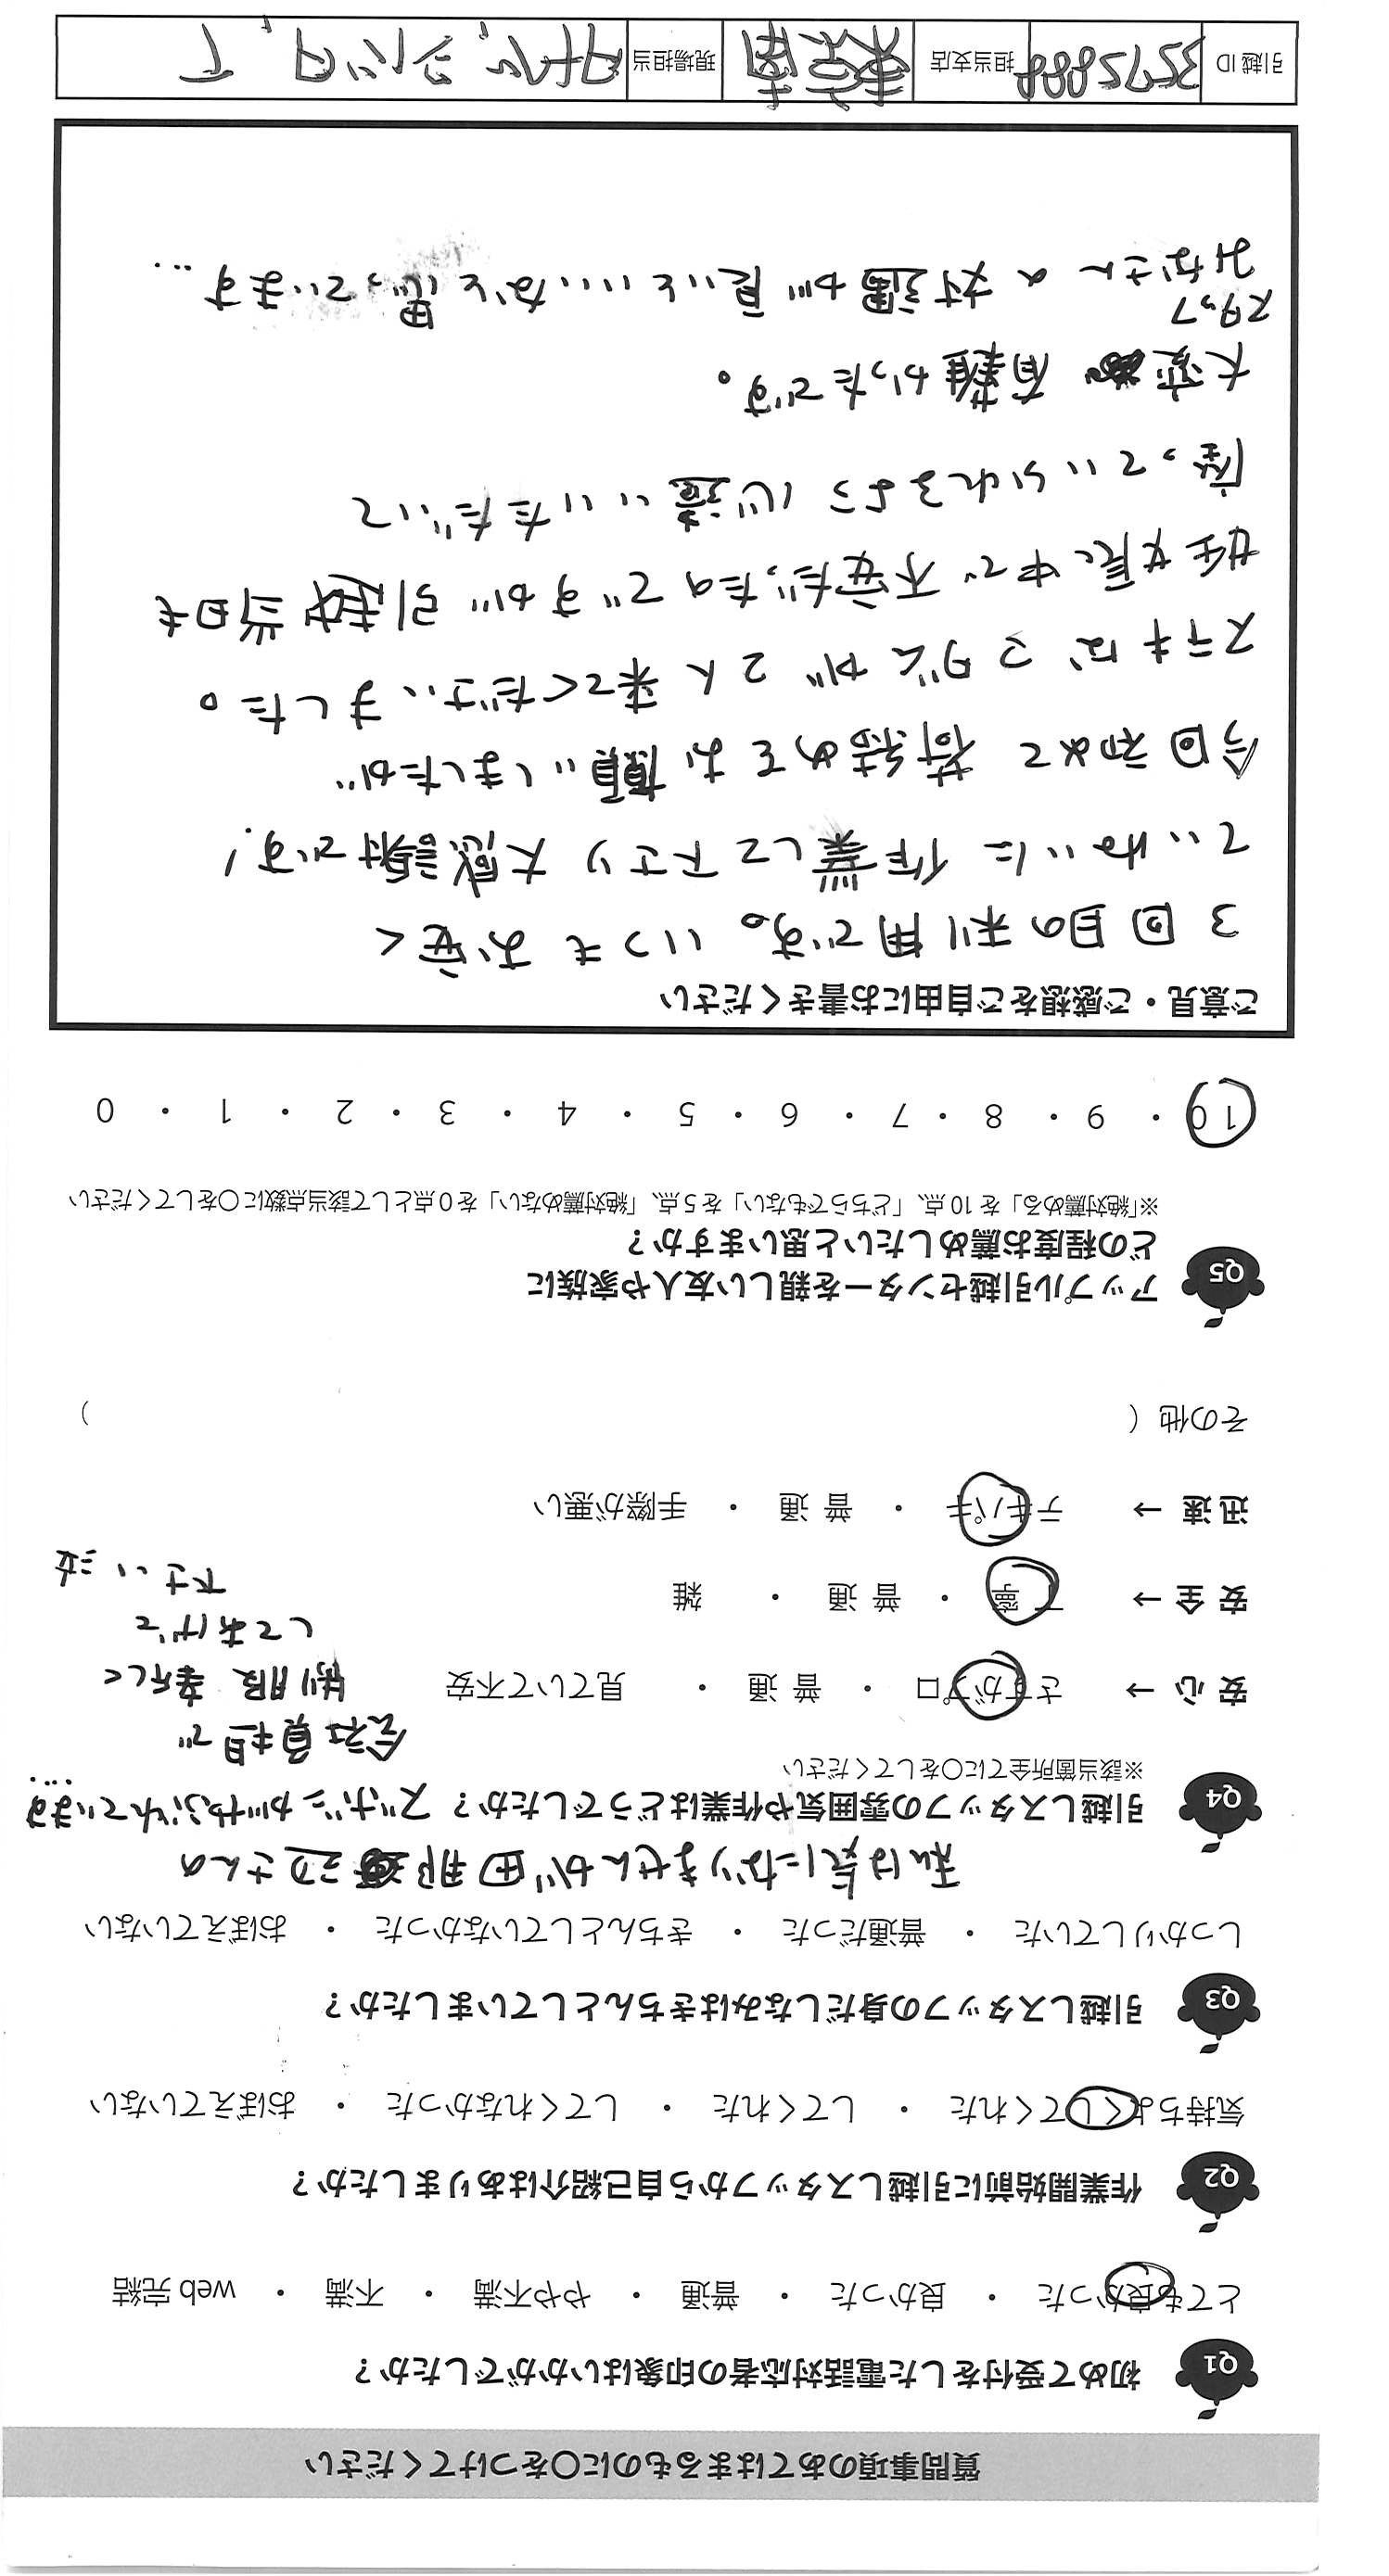 質問事項のあてはまるものに○をつけてください
Q1 初めて受付をした電話対応者の印象はいかがでしたか？
とても良かった ・ 良かった ・ 普通 ・ やや不満 ・ 不満 ・ web完結
Q2 作業開始前に引越しスタッフから自己紹介はありましたか？
気持ちよくしてくれた ・ してくれた ・ してくれなかった ・ おぼえていない
Q3 引越しスタッフの身だしなみはきちんとしていましたか？
しっかりしていた ・ 普通だった ・ きちんとしていなかった ・ おぼえていない
私は気になりませんが田那辺さんの
Q4 引越しスタッフの雰囲気や作業はどうでしたか？ ズボンがやぶれています…
※該当箇所全てに○をしてください
会社負担で
安心→ さすがプロ ・ 普通 ・ 見ていて不安 制服 幸代
してあげて
安全→ 丁寧 ・ 普通 ・ 雑
下さい 泣
迅速→ テキパキ ・ 普通 ・ 手際が悪い
その他（ ）
Q5 アップル引越センターを親しい友人や家族に
どの程度お薦めしたいと思いますか？
※「絶対薦める」を10点、「どちらでもない」を5点、「絶対薦めない」を0点として該当点数に○をしてください
10 ・ 9 ・ 8 ・ 7 ・ 6 ・ 5 ・ 4 ・ 3 ・ 2 ・ 1 ・ 0
ご意見・ご感想をご自由にお書きください
3回目の利用です。いつもお安く
ていねいに作業して下さり大感謝です！
今回初めて荷詰めをお願いしましたが
ステキなマダムが2人来てくださいました。
妊娠中で不安だったのですが引越当日も
座っていられるよう心遣いいただいて
大変有難かったです。
スタッフ
みなさんの対遇が良いといいなと思っています…
引越ID 3572888 担当支店 東京南 現場担当